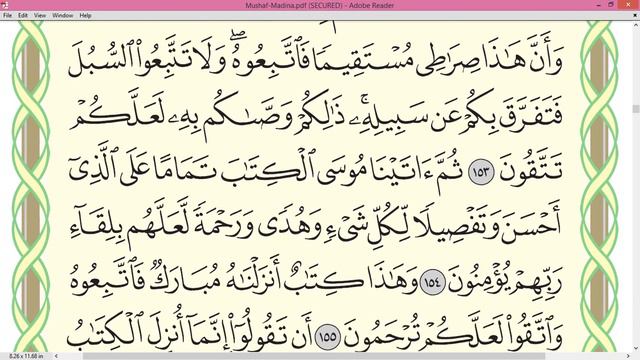 Mushaf-Madina.pdf (SECURED) - Adobe Reader
File Edit View Window Help
وَأَنَّ هَٰذَا صِرَٰطِى مُسْتَقِيمًا فَٱتَّبِعُوهُ ۖ وَلَا تَتَّبِعُوا۟ ٱلسُّبُلَ
فَتَفَرَّقَ بِكُمْ عَن سَبِيلِهِۦ ۚ ذَٰلِكُمْ وَصَّىٰكُم بِهِۦ لَعَلَّكُمْ
تَتَّقُونَ ١٥٣ ثُمَّ ءَاتَيْنَا مُوسَى ٱلْكِتَٰبَ تَمَامًا عَلَى ٱلَّذِىٓ
أَحْسَنَ وَتَفْصِيلًا لِّكُلِّ شَىْءٍ وَهُدًى وَرَحْمَةً لَّعَلَّهُم بِلِقَآءِ
رَبِّهِمْ يُؤْمِنُونَ ١٥٤ وَهَٰذَا كِتَٰبٌ أَنزَلْنَٰهُ مُبَارَكٌ فَٱتَّبِعُوهُ
وَٱتَّقُوا۟ لَعَلَّكُمْ تُرْحَمُونَ ١٥٥ أَن تَقُولُوٓا۟ إِنَّمَآ أُنزِلَ ٱلْكِتَٰبُ
8.26 x 11.68 in